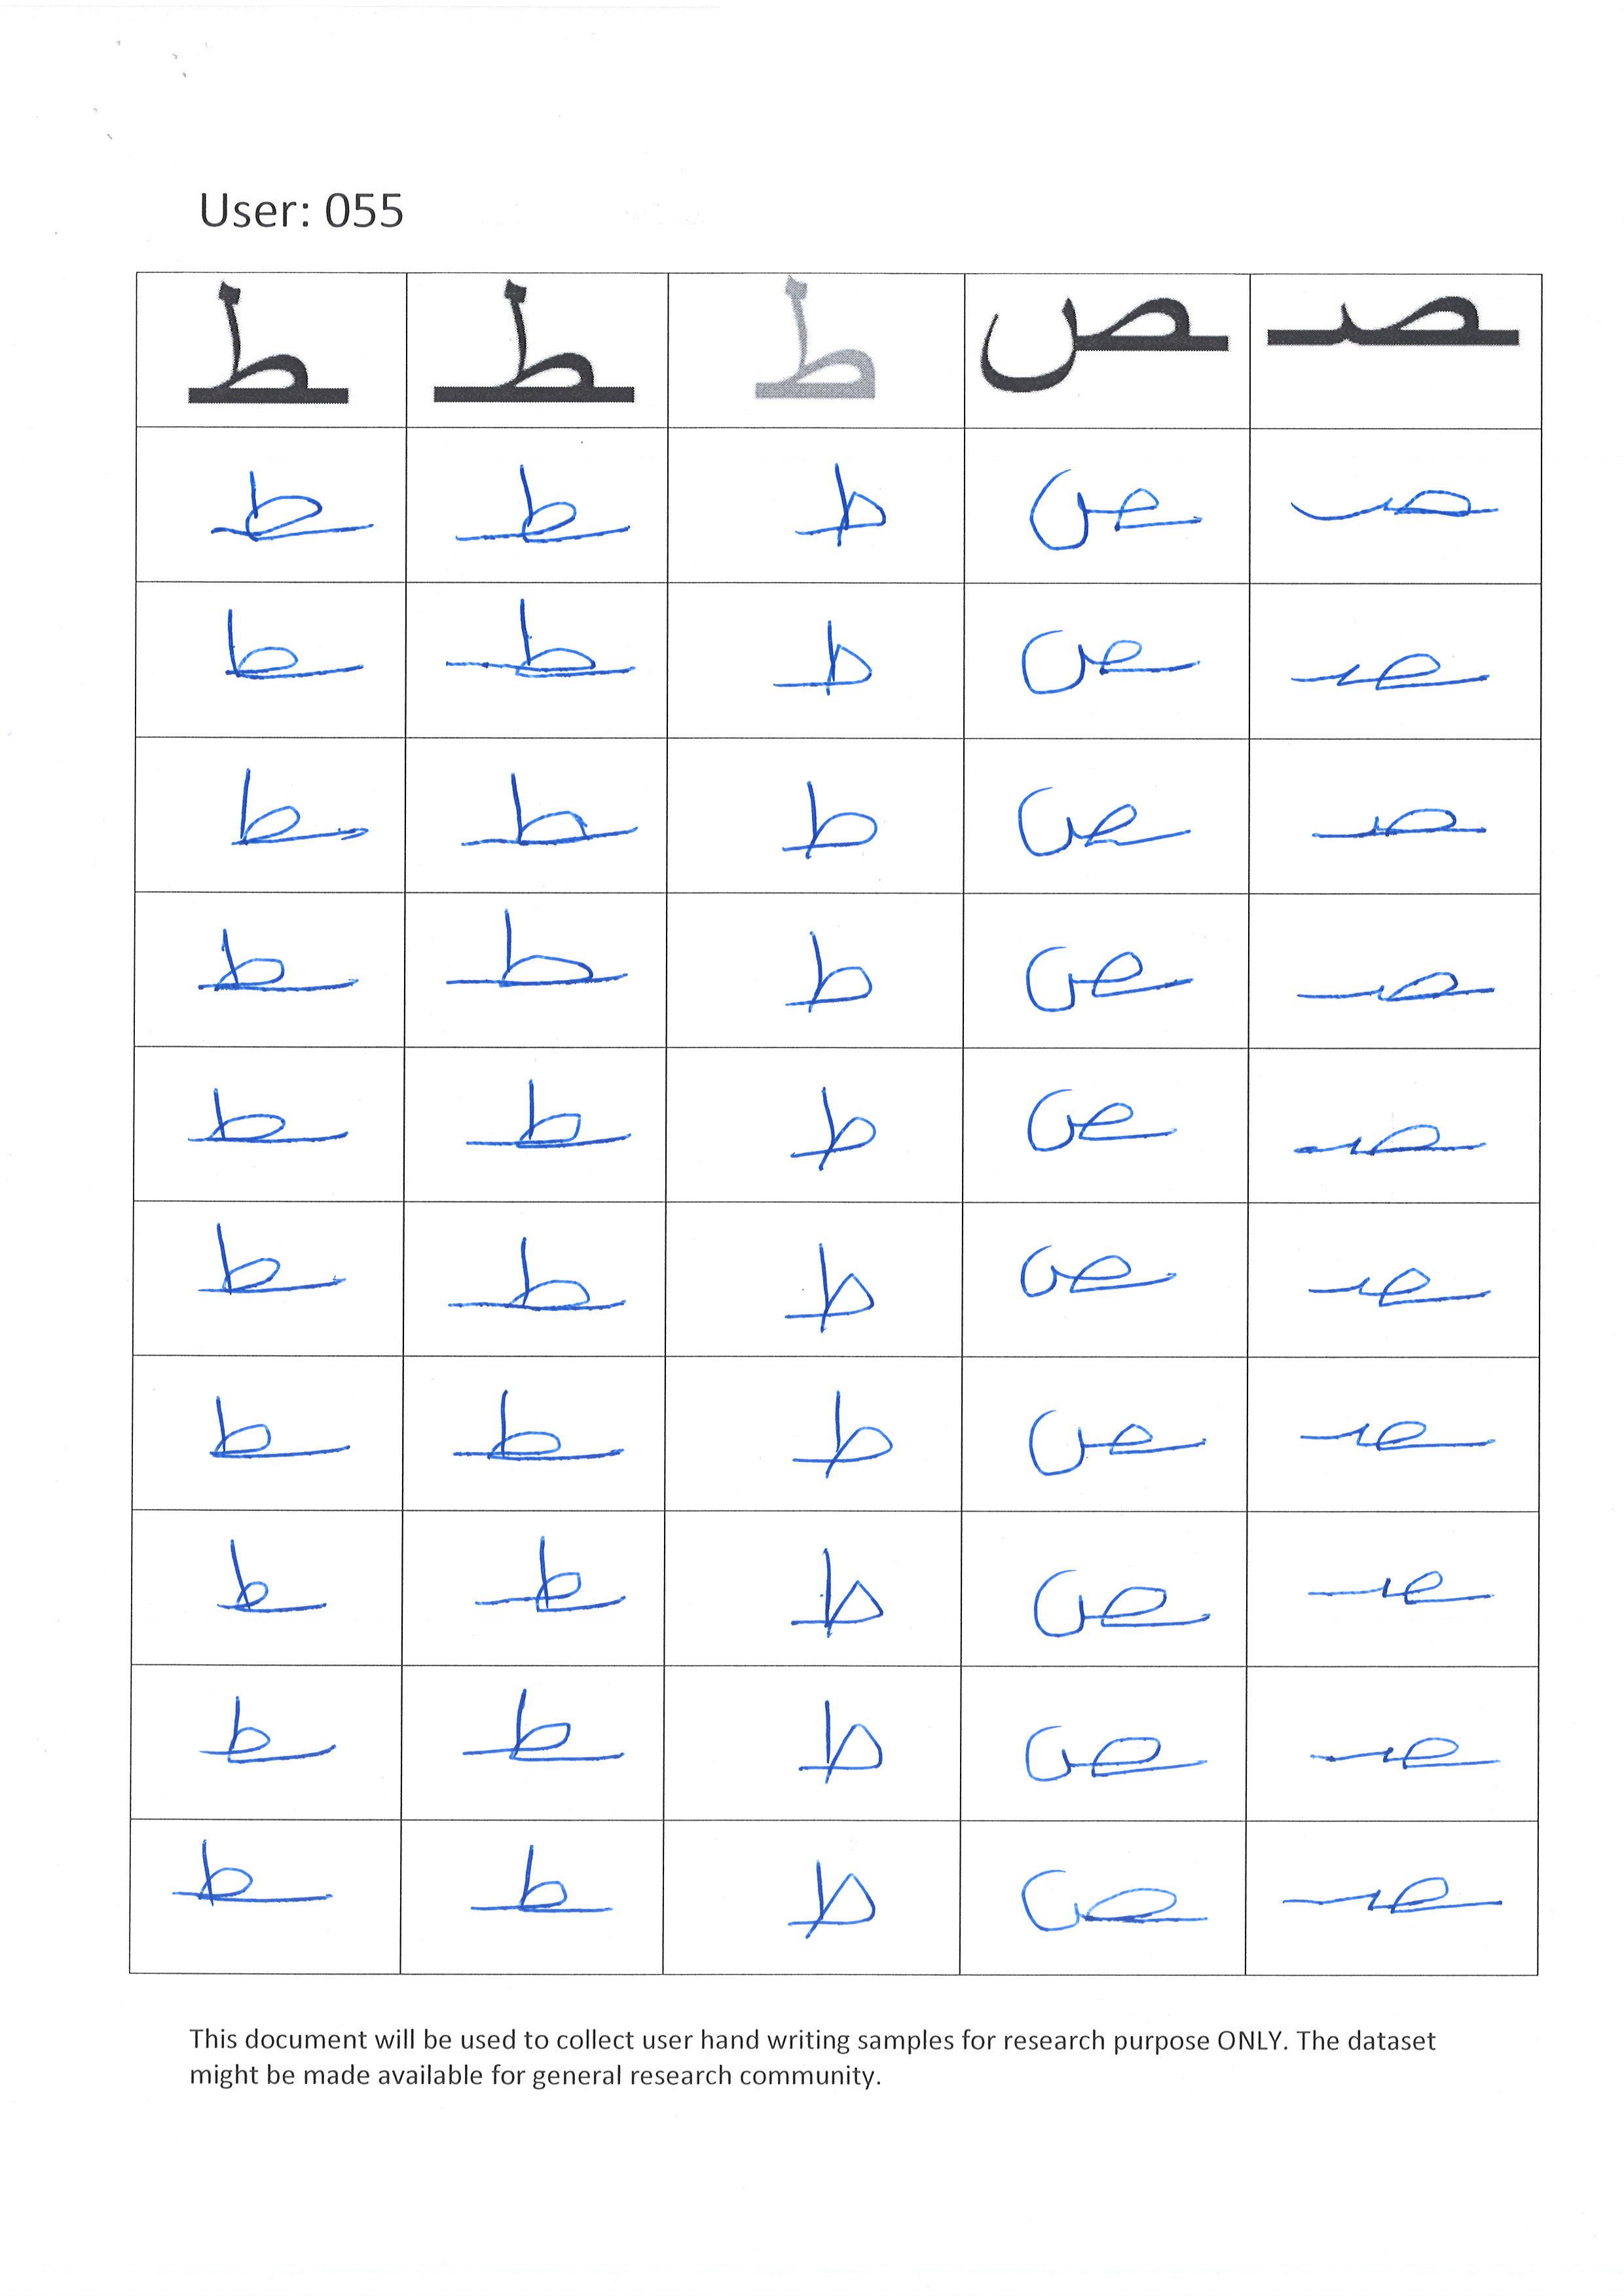 User: 055
ط ـطـ ط ـص ـصـ
ط ـطـ ط ـص ـصـ
ط ـطـ ط ـص ـصـ
ط ـطـ ط ـص ـصـ
ط ـطـ ط ـص ـصـ
ط ـطـ ط ـص ـصـ
ط ـطـ ط ـص ـصـ
ط ـطـ ط ـص ـصـ
ط ـطـ ط ـص ـصـ
ط ـطـ ط ـص ـصـ
ط ـطـ ط ـص ـصـ
This document will be used to collect user hand writing samples for research purpose ONLY. The dataset
might be made available for general research community.